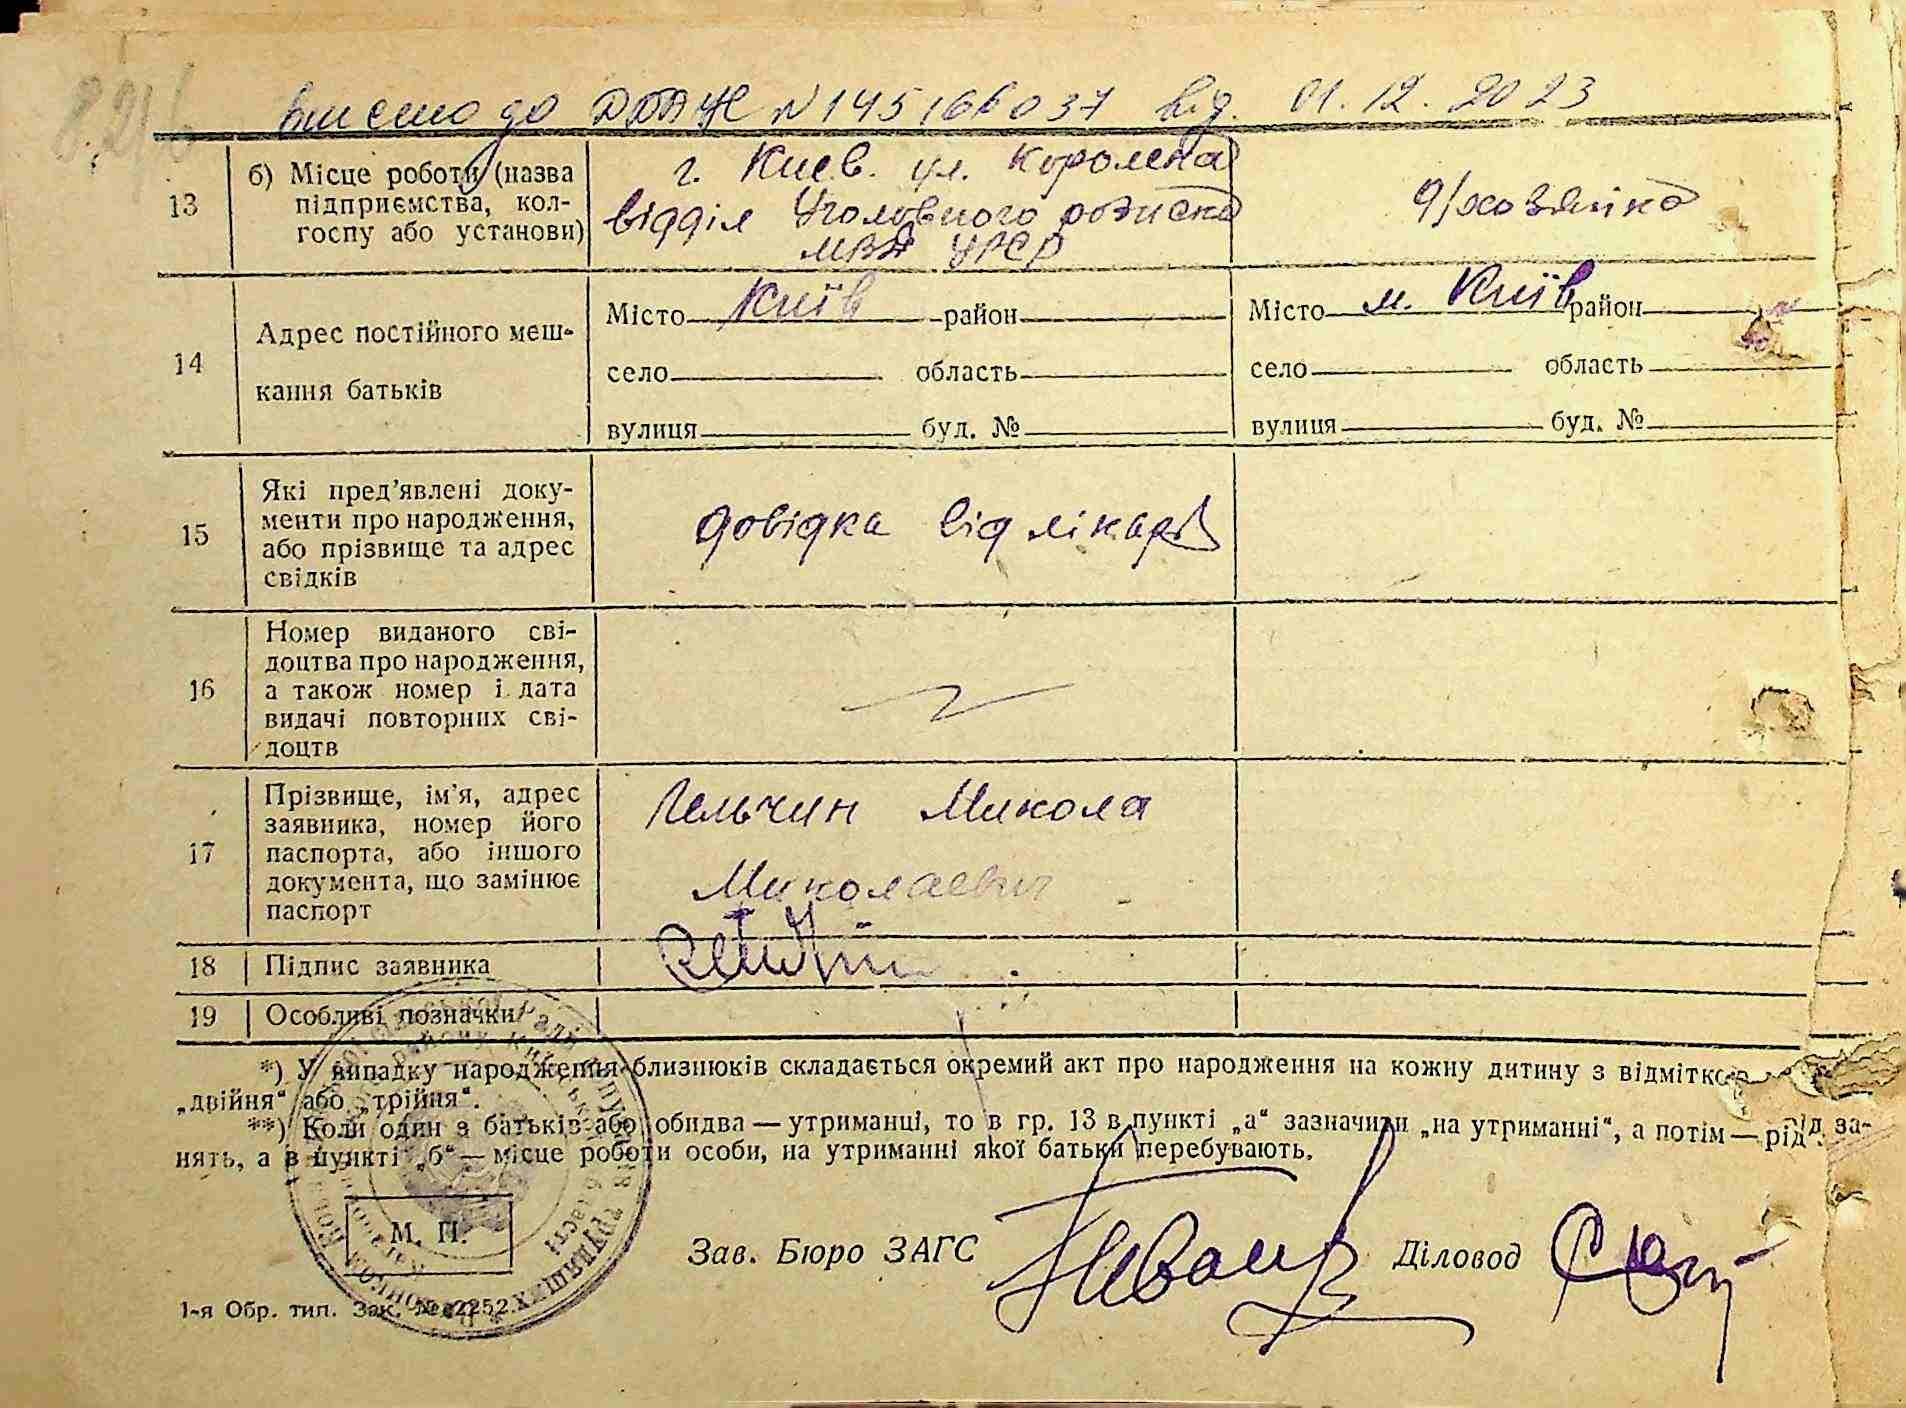 внесено до ДРАЦС №145166037 від. 01.12.2023
13
б) Місце роботи (назва
підприємства, кол-
госпу або установи)
г. Киев. ул. Короленка
відділ Уголовного розиска
МВД УРСР
д/хозяйка
14
Адрес постійного меш-
кання батьків
Місто Київ район
село область
вулиця буд. №
Місто м. Київ район
село область
вулиця буд. №
15
Які пред'явлені доку-
менти про народження,
або прізвище та адрес
свідків
довідка від лікаря
16
Номер виданого сві-
доцтва про народження,
а також номер і дата
видачі повторних сві-
доцтв
17
Прізвище, ім'я, адрес
заявника, номер його
паспорта, або іншого
документа, що замінює
паспорт
Гельчин Микола
Миколаевич
18 Підпис заявника
19 Особливі позначки
*) У випадку народження близнюків складається окремий акт про народження на кожну дитину з відміткою
„двійня“ або „трійня“.
**) Коли один з батьків або обидва — утриманці, то в гр. 13 в пункті „а“ зазначити „на утриманні“, а потім — рід за-
нять, а в пункті „б“ — місце роботи особи, на утриманні якої батьки перебувають.
М. П.
Зав. Бюро ЗАГС
Діловод
1-я Обр. тип. Зак. № 2252.